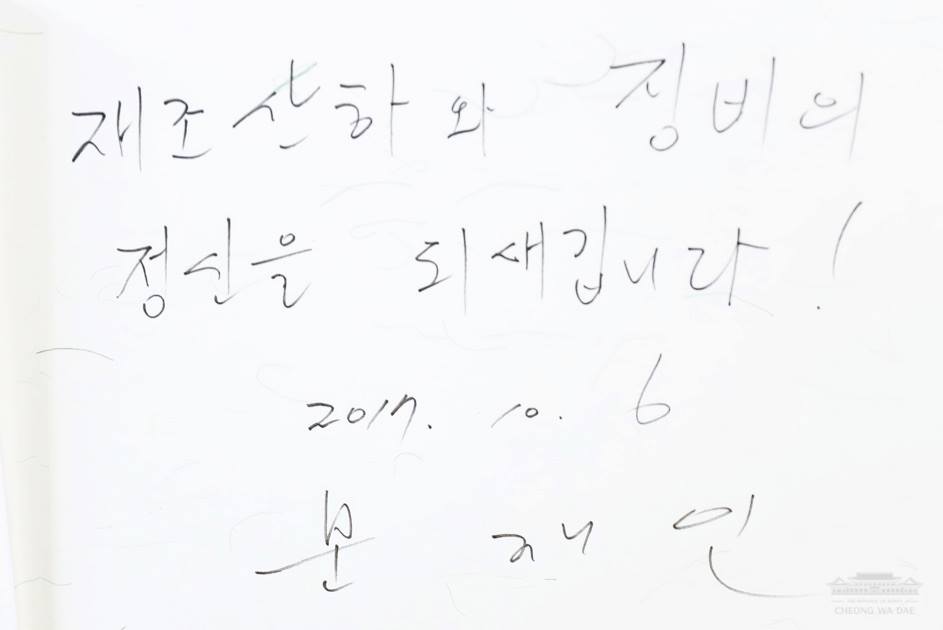 재조산하와 징비의
정신을 되새깁니다!
2017. 10. 6
문 재 인
CHEONG WA DAE